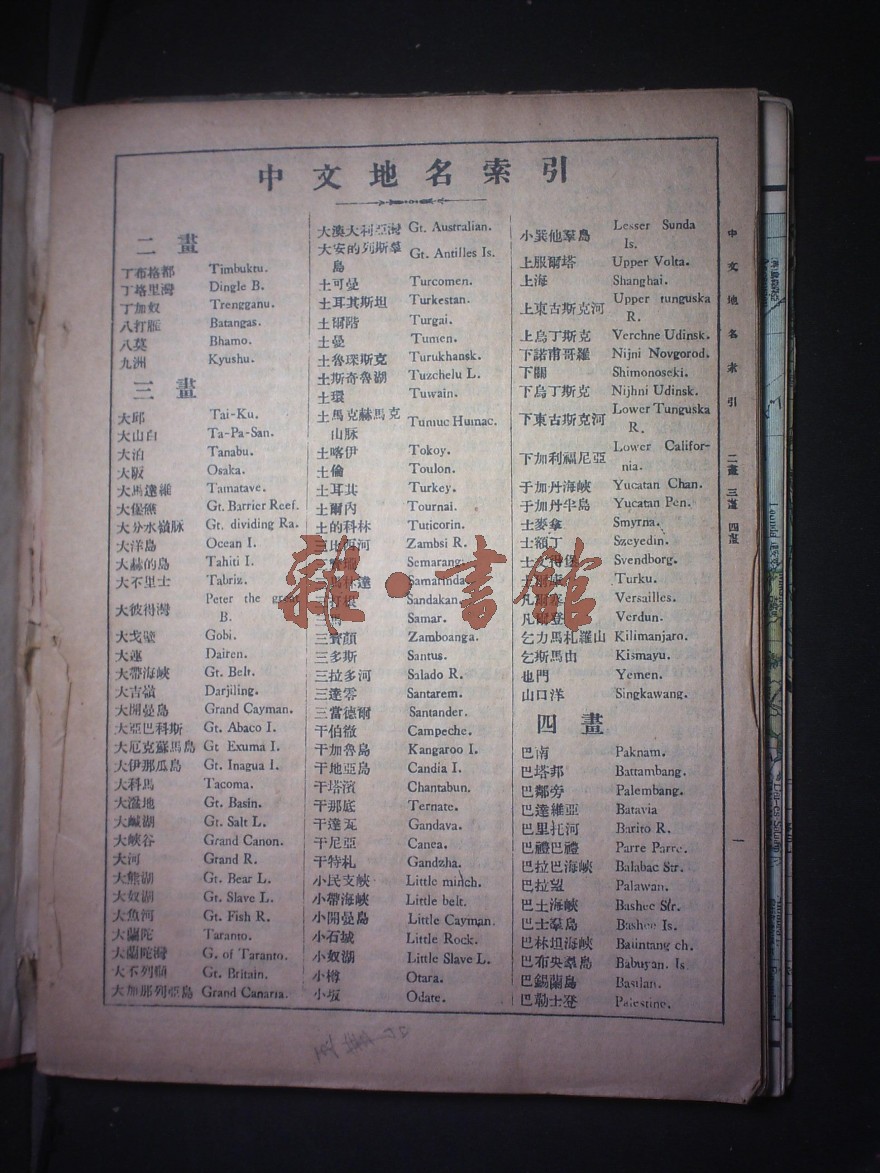 中文地名索引
二畫
丁布格都 Timbuktu.
丁塔里灣 Dingle B.
丁加奴 Trengganu.
八打雁 Batangas.
八莫 Bhamo.
九洲 Kyushu.
三畫
大邱 Tai-Ku.
大山白 Ta-Pa-San.
大泊 Tanabu.
大阪 Osaka.
大馬達維 Tamatave.
大堡礁 Gt. Barrier Reef.
大分水嶺脉 Gt. dividing Ra.
大洋島 Ocean I.
大赫的島 Tahiti I.
大不里士 Tabriz.
大彼得灣 Peter the great B.
大戈壁 Gobi.
大蓮 Dairen.
大帶海峽 Gt. Belt.
大吉嶺 Darjiling.
大開曼島 Grand Cayman.
大亞巴科斯 Gt. Abaco I.
大厄克蘇馬島 Gt Exuma I.
大伊那瓜島 Gt. Inagua I.
大科馬 Tacoma.
大盆地 Gt. Basin.
大鹹湖 Gt. Salt L.
大峽谷 Grand Canon.
大河 Grand R.
大熊湖 Gt. Bear L.
大奴湖 Gt. Slave L.
大魚河 Gt. Fish R.
大蘭陀 Taranto.
大蘭陀灣 G. of Taranto.
大不列顛 Gt. Britain.
大加那列亞島 Grand Canaria.
大澳大利亞灣 Gt. Australian.
大安的列斯羣島 Gt. Antilles Is.
土可曼 Turcomen.
土耳其斯坦 Turkestan.
土爾階 Turgai.
土曼 Tumen.
土魯琛斯克 Turukhansk.
土斯奇魯湖 Tuzchelu L.
土環 Tuwain.
土馬克赫馬克山脉 Tumuc Humac.
土喀伊 Tokoy.
土倫 Toulon.
土耳其 Turkey.
土爾內 Tournai.
土的科林 Tuticorin.
三比西河 Zambsi R.
Semarang.
Samarinda.
Sandakan.
Samar.
三寶顏 Zamboanga.
三多斯 Santus.
三拉多河 Salado R.
三達零 Santarem.
三當德爾 Santander.
干伯徹 Campeche.
干加魯島 Kangaroo I.
干地亞島 Candia I.
干塔濱 Chantabun.
干那底 Ternate.
干達瓦 Gandava.
干尼亞 Canea.
干特札 Gandzha.
小民支峽 Little minch.
小帶海峽 Little belt.
小開曼島 Little Cayman.
小石城 Little Rock.
小奴湖 Little Slave L.
小樽 Otara.
小坂 Odate.
小巽他羣島 Lesser Sunda Is.
上服爾塔 Upper Volta.
上海 Shanghai.
上東古斯克河 Upper tunguska R.
上烏丁斯克 Verchne Udinsk.
下諾甫哥羅 Nijni Novgorod.
下關 Shimonoseki.
下烏丁斯克 Nijhni Udinsk.
下東古斯克河 Lower Tunguska R.
下加利福尼亞 Lower California.
于加丹海峽 Yucatan Chan.
于加丹半島 Yucatan Pen.
士麥拿 Smyrna.
士額丁 Szeyedin.
Svendborg.
Turku.
凡爾塞 Versailles.
凡爾登 Verdun.
乞力馬札羅山 Kilimanjaro.
乞斯馬由 Kismayu.
也門 Yemen.
山口洋 Singkawang.
四畫
巴南 Paknam.
巴塔邦 Battambang.
巴鄰旁 Palembang.
巴達維亞 Batavia
巴里托河 Barito R.
巴禮巴禮 Parre Parre.
巴拉巴海峽 Balabac Str.
巴拉望 Palawan.
巴士海峽 Bashee Str.
巴士羣島 Bashee Is.
巴林坦海峽 Balintang ch.
巴布央羣島 Babuyan. Is
巴錫蘭島 Basilan.
巴勒士登 Palestine.
中文地名索引 二畫 三畫 四畫
一
雜·書館